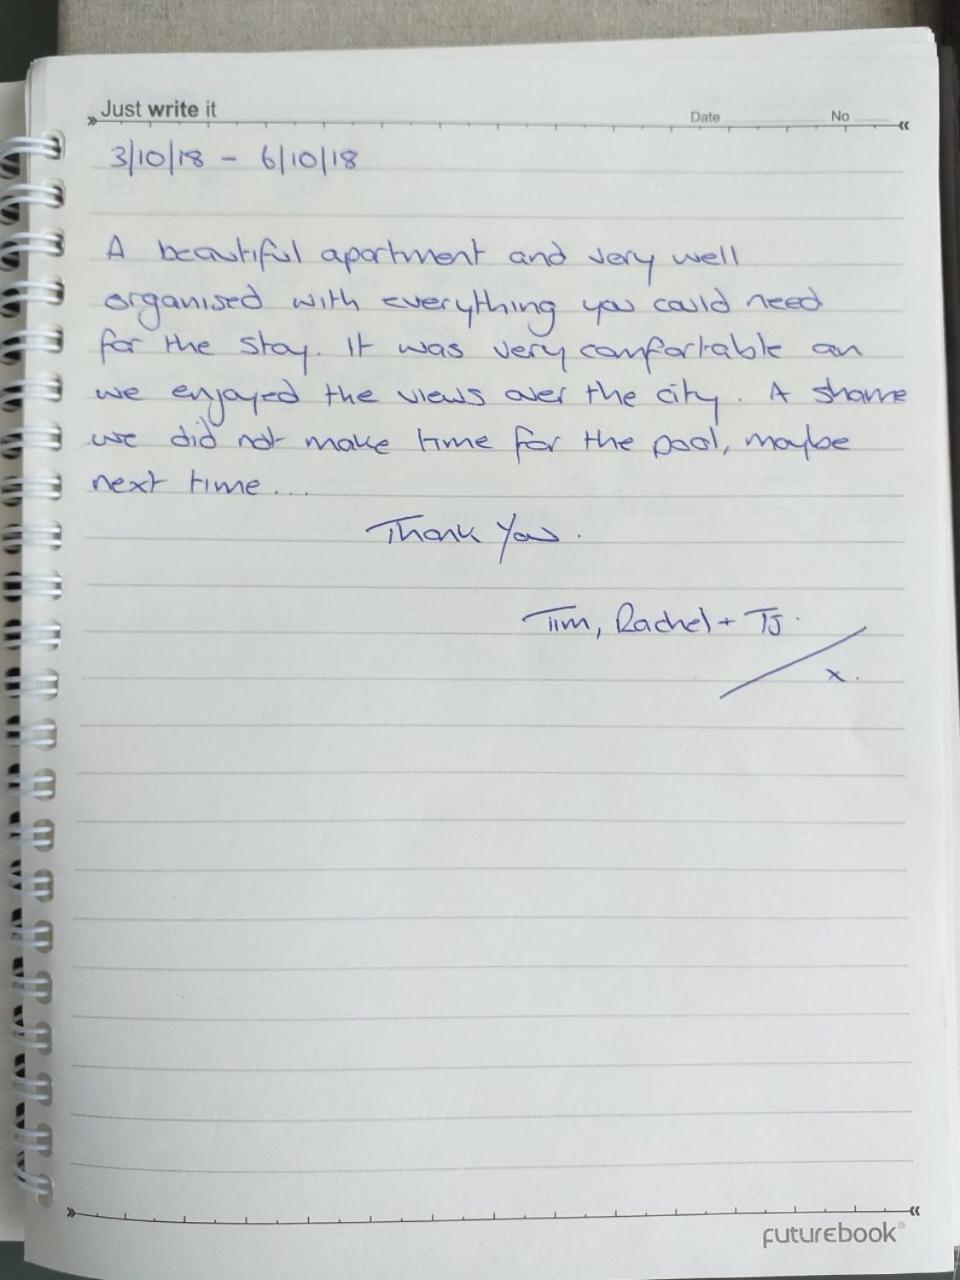 Just write it
Date No
3/10/18 - 6/10/18
A beautiful apartment and very well
organised with everything you could need
for the stay. It was very comfortable an
we enjoyed the views over the city. A shame
we did not make time for the pool, maybe
next time...
Thank You.
Tim, Rachel + TJ.
x.
futurebook®